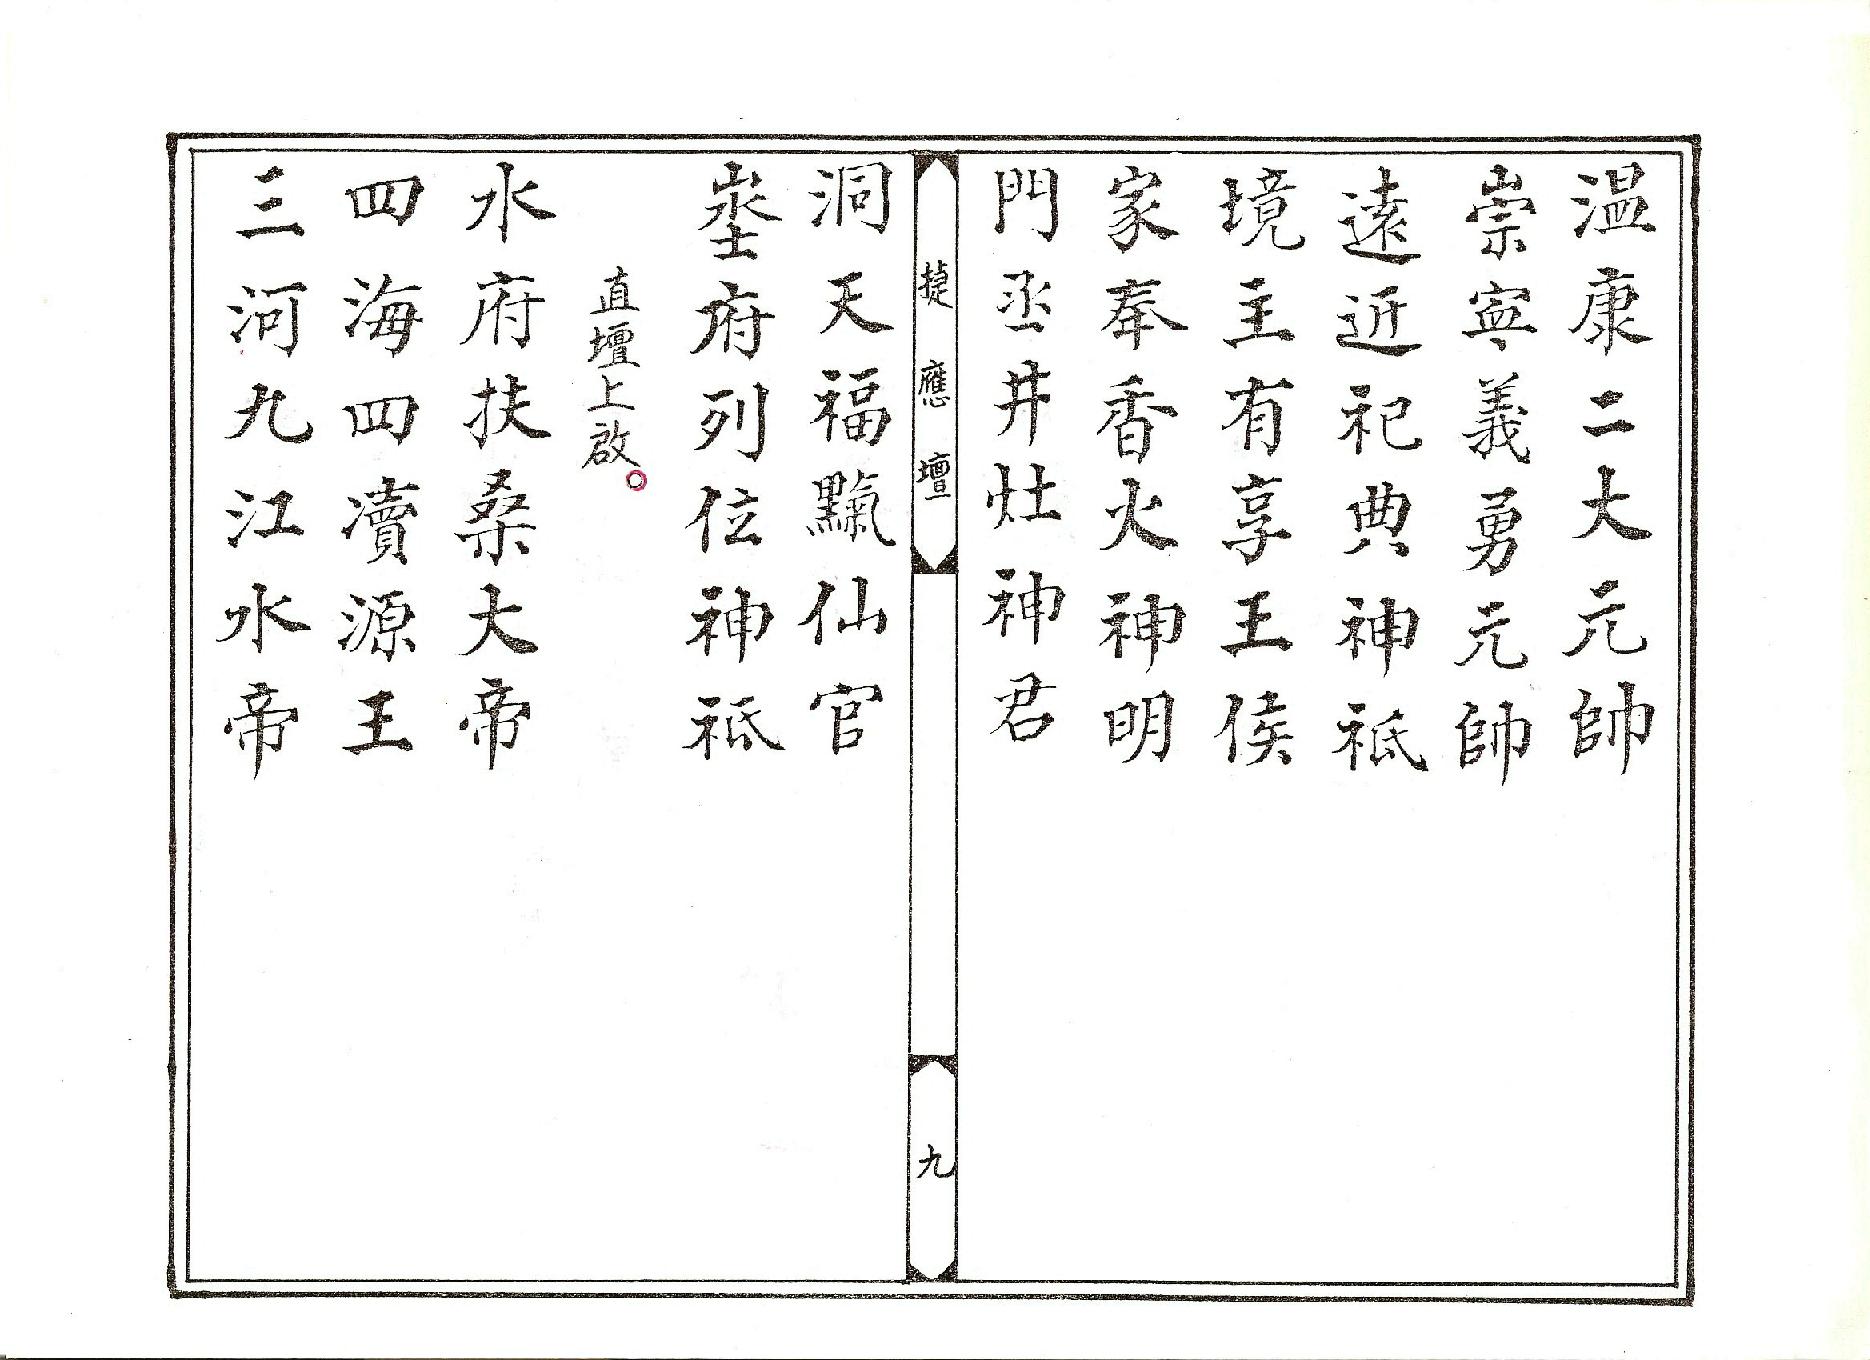 温康二大元帥
崇寧義勇元帥
遠近祀典神祇
境主有享王侯
家奉香火神明
門丞井灶神君
捷應壇
九
洞天福仙官
府列位神祇
直壇上啟。
水府扶桑大帝
四海四瀆源王
三河九江水帝